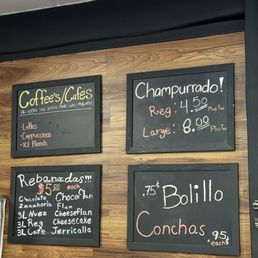 Coffee's/Cafes
- Lattes
- Cappuccinos
- ICE Blends
Champurrado!
Reg : 4.50 Plus Tax
Large : 8.00 Plus Tax
Rebanadas!!!
$5.00 each
Chocolate ChocoFlan
Zanahoria Flan
3L Nuez CheeseFlan
3L Reg Cheesecake
3L Cafe Jerricalla
.75¢ Bolillo
Conchas .95¢
each